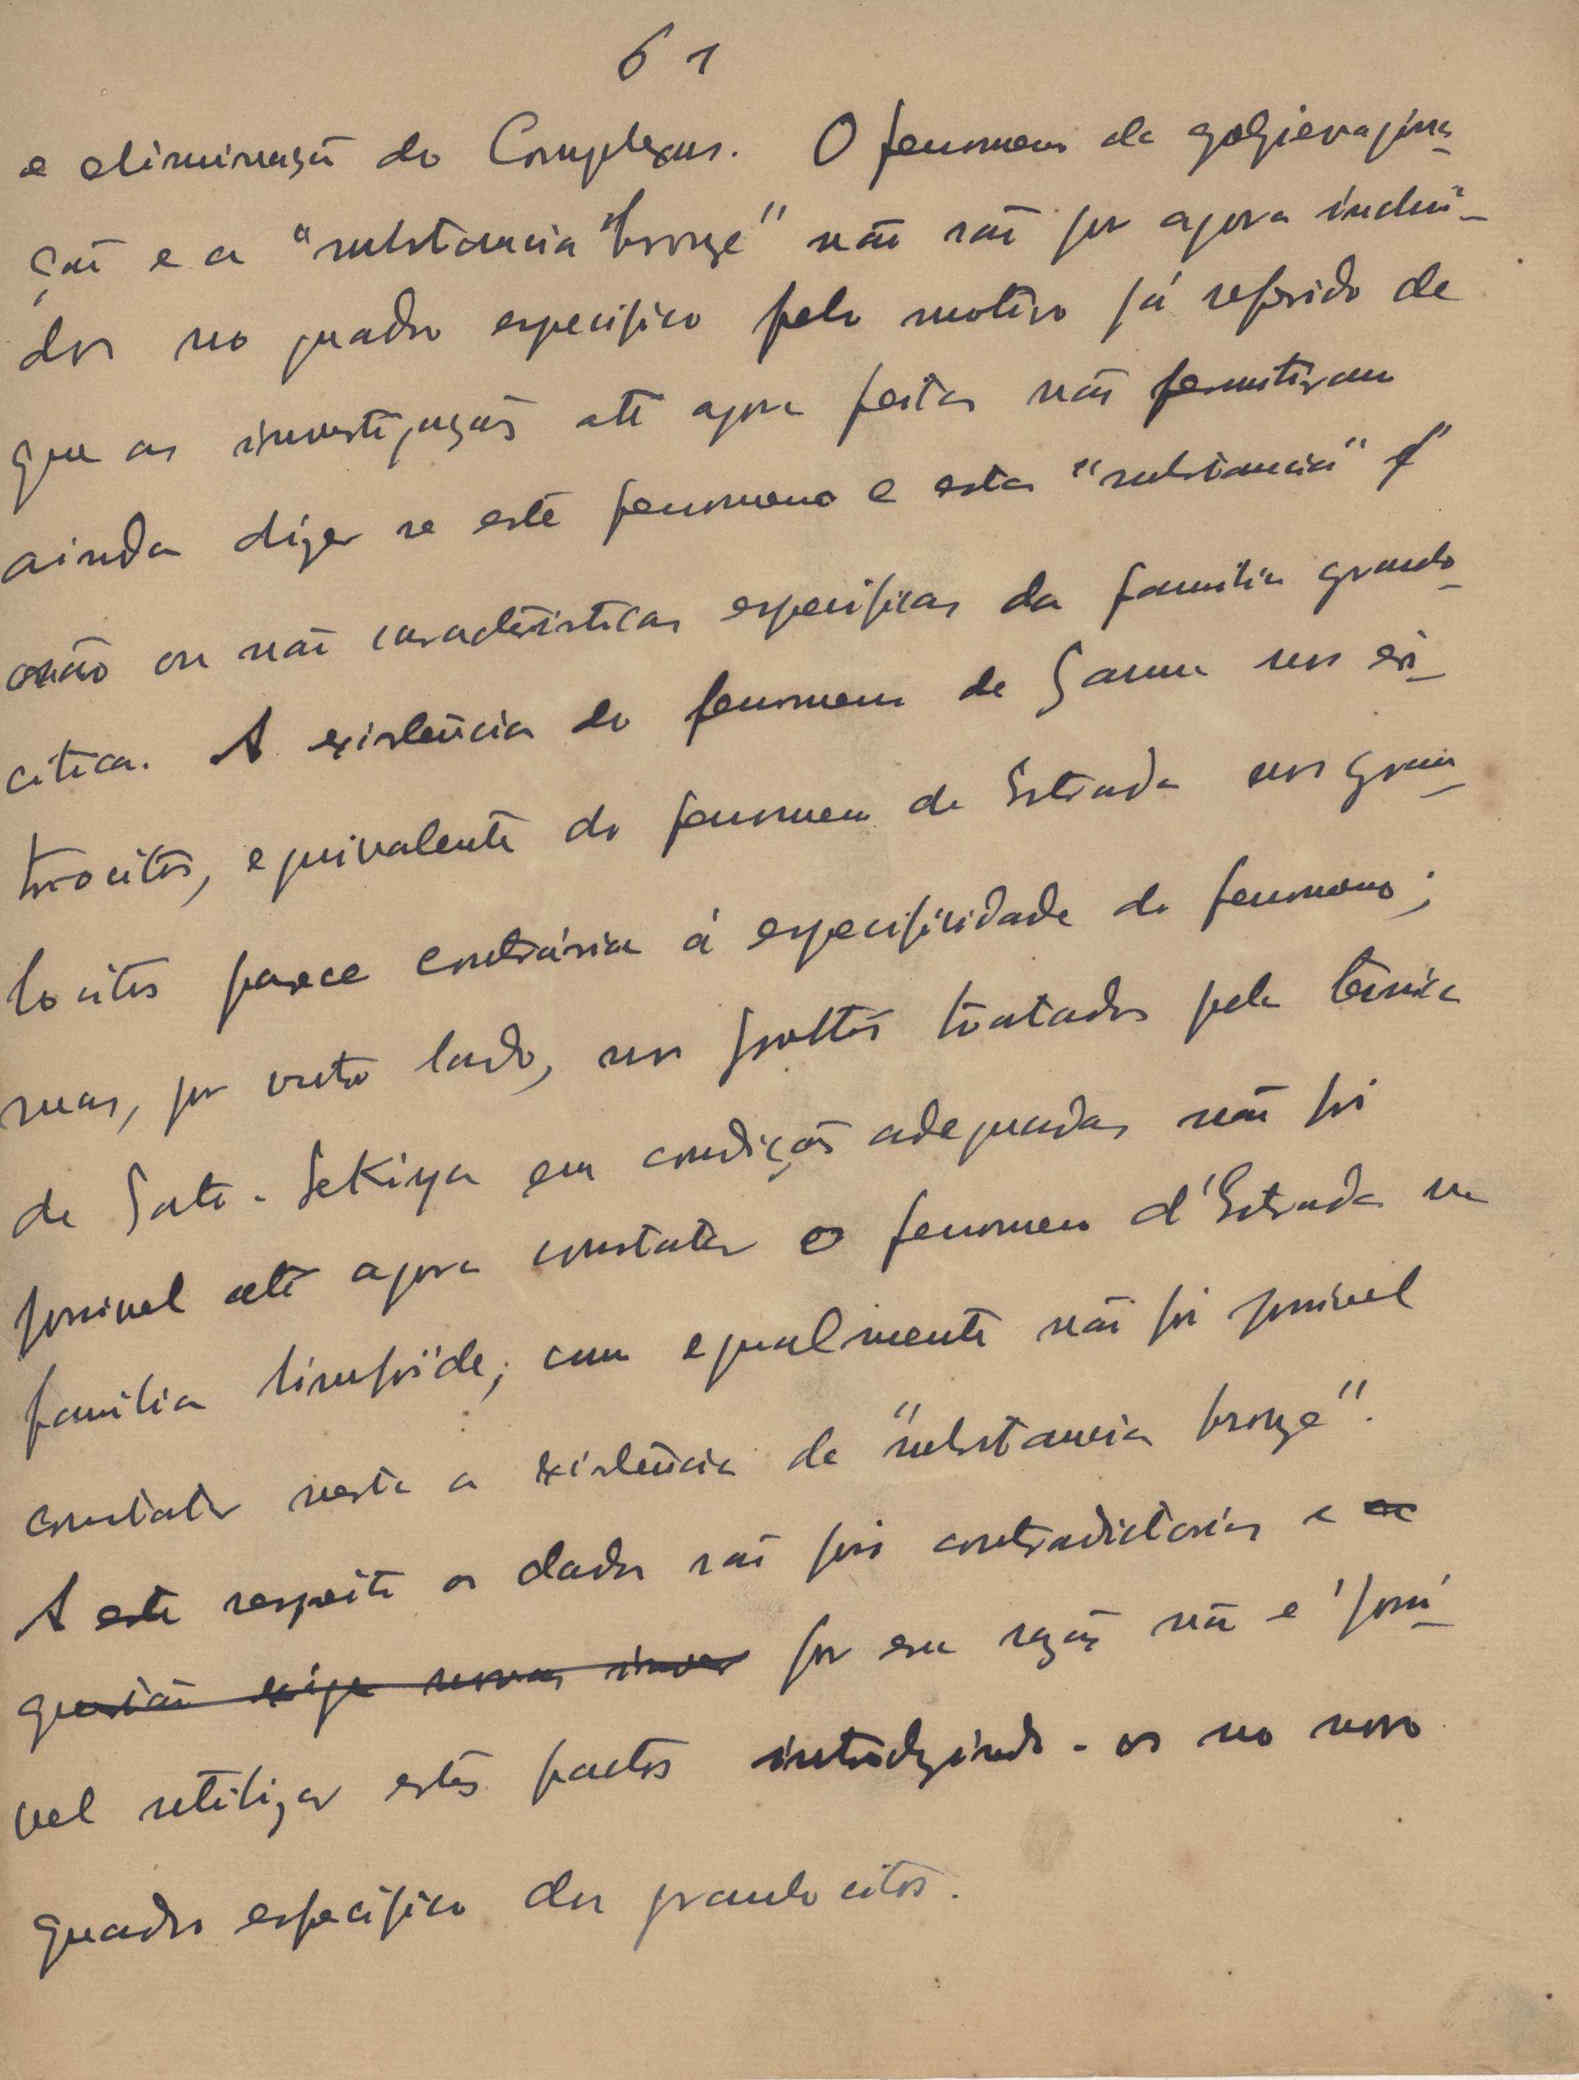 61
e eliminação do Complexus. O fenomeno de golgievagina-
ção e a "substancia "bronze" não são por agora incluí-
dos no quadro especifico pelo motivo já referido de
que as investigações até agora feitas não permitiram
ainda dizer se este fenomeno e esta "substancia"
são ou não caracteristicas especificas da familia granulo-
citica. A existência do fenomeno de Sanni nos eri-
trocitos, equivalente do fenomeno de Estrada nos granu-
locitos parece contrária á especificidade do fenomeno;
mas, por outro lado, nos frottis tratados pela técnica
de Sato-Sekiya em condições adequadas não foi
possivel até agora constatar o fenomeno d'Estrada na
familia limfoide; como egualmente não foi possivel
constatar nesta a existência da "substancia bronze".
A este respeito os dados são pois contradictorios e a
questão exige novas inves por esta razão não é possi-
vel utilizar estes factos introduzindo-os no novo
quadro especifico dos granulocitos.